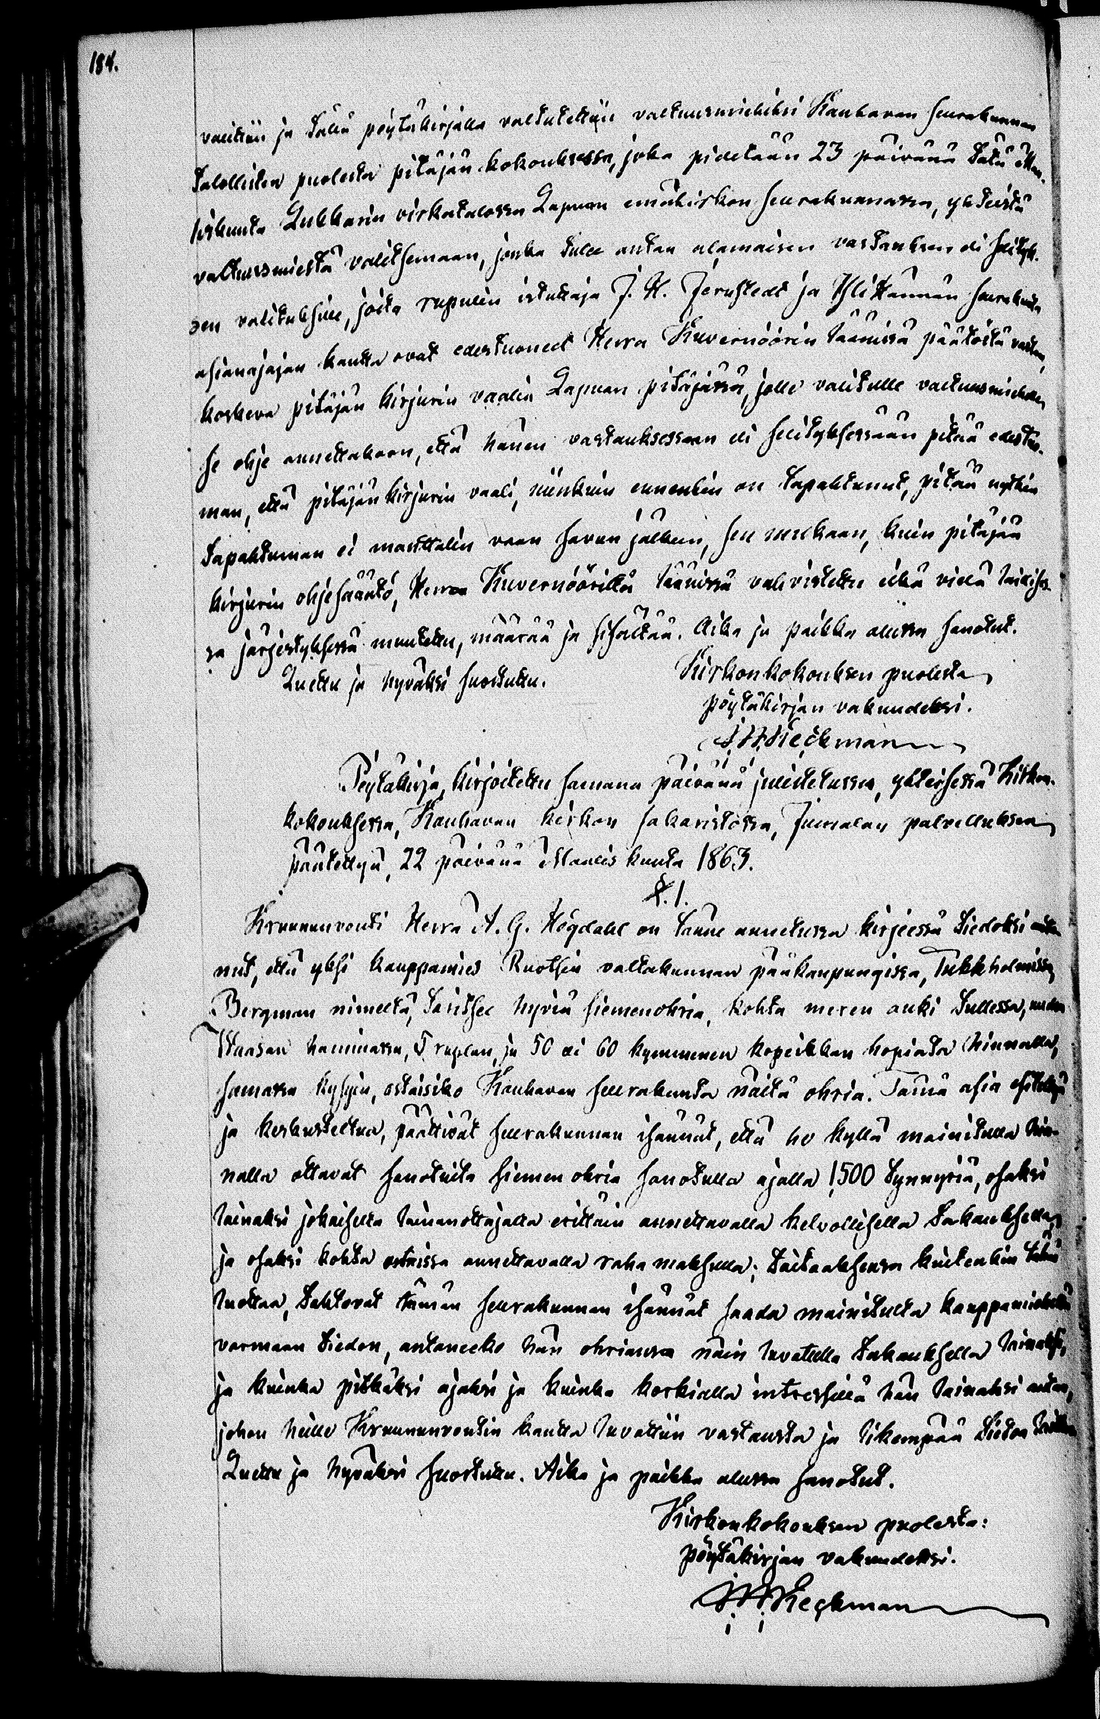 184.
valittiin ja tällä pöytäkirjalla valtutettiin valtuusmieheksi Kauhavan seurakunnan
talollisten puolesta pitäjän kokouksessa, joka pidetään 23 päivänä tätä Maa-
liskuuta Lukkarin virkatalossa Lapuan emäkirkon seurakunnassa, yhteistä
valtuusmiestä valitsemaan, jonka tulee antaa alamaisen vastauksen eli selityk-
sen valituksiin, joita rupulin istuttaja J. H. Jernstedt ja Ylihärmän seurakunta
asianajajan kautta ovat edestuoneet Herra Kuvernöörin läänissä päätöstä vastaan,
koskeva pitäjän kirjurin vaalia Lapuan pitäjässä, jolle valitulle valtuusmiehelle
se ohje annettakoon, että hänen vastauksessaan eli selityksessään pitää edestuo-
man, että pitäjänkirjurin vaali, niinkuin ennenkin on tapahtunut, pitää nytkin
tapahtuman ei manttalin vaan savun jälkeen, sen mukaan, kuin pitäjän
kirjurin ohjesääntö, Herra Kuvernööriltä läänissä vahvistettu eikä vielä laillises-
sa järjestyksessä muutettu, määrää ja sisältää. Aika ja paikka alussa sanotut.
Luettu ja hyväksi suostuttu.
Kirkonkokouksen puolesta
pöytäkirjan vakuudeksi.
J. W. Kieckman
Pöytäkirja, kirjoitettu samana päivänä juliitetussa, yhteisessä Kirkon-
kokouksessa, Kauhavan kirkon sakaristossa, Jumalan palvelluksen
päätettyä, 22 päivänä Maalis kuuta 1863.
§. 1.
Kruununvouti Herra A. G. Högdahl on tänne annetussa kirjeessä tiedoksi anta-
nut, että yksi kauppamies Ruothin valtakunnan pääkaupungissa, Tukkholmissa,
Bergman nimeltä, taritsee hyviä siemenohria, kohta meren auki tullessa, uuden
Waasan haminassa, 5 ruplan, ja 50 eli 60 kymmenen kopeikkan hopiata hinnalla,
samassa kysyin, ostaisiko Kauhavan seurakunta näitä ohria. Tämä asia esiteltyä
ja keskusteltua, päättivät seurakunnan isännät, että he kyllä mainitulla hin-
nalla ottavat sanotuita siemen ohria sanotulla ajalla 1,500 tynnyriä, osaksi
lainaksi jokaiselta lainanottajalta erittäin annettavalla kelvollisella takauksella,
ja osaksi kohta ostaissa annettavalla raha maksulla; taitaaksensa kuitenkin tätä
luottaa, tahtovat tämän seurakunnan isännät saada mainitulta kauppamieheltä
varmaan tiedon, antaneeko hän ohriansa näin luvatulla takauksella lainaksi,
ja kuinka pitkäksi ajaksi ja kuinka korkialla intressillä hän lainaksi antaa,
johon heille Kruununvoutin kautta luvattiin vastausta ja likempää tietoa
Luettu ja hyväksi suostuttu. Aika ja paikka alussa sanotut.
Kirkonkokouksen puolesta:
pöytäkirjan vakuudeksi.
J. W. Kieckman